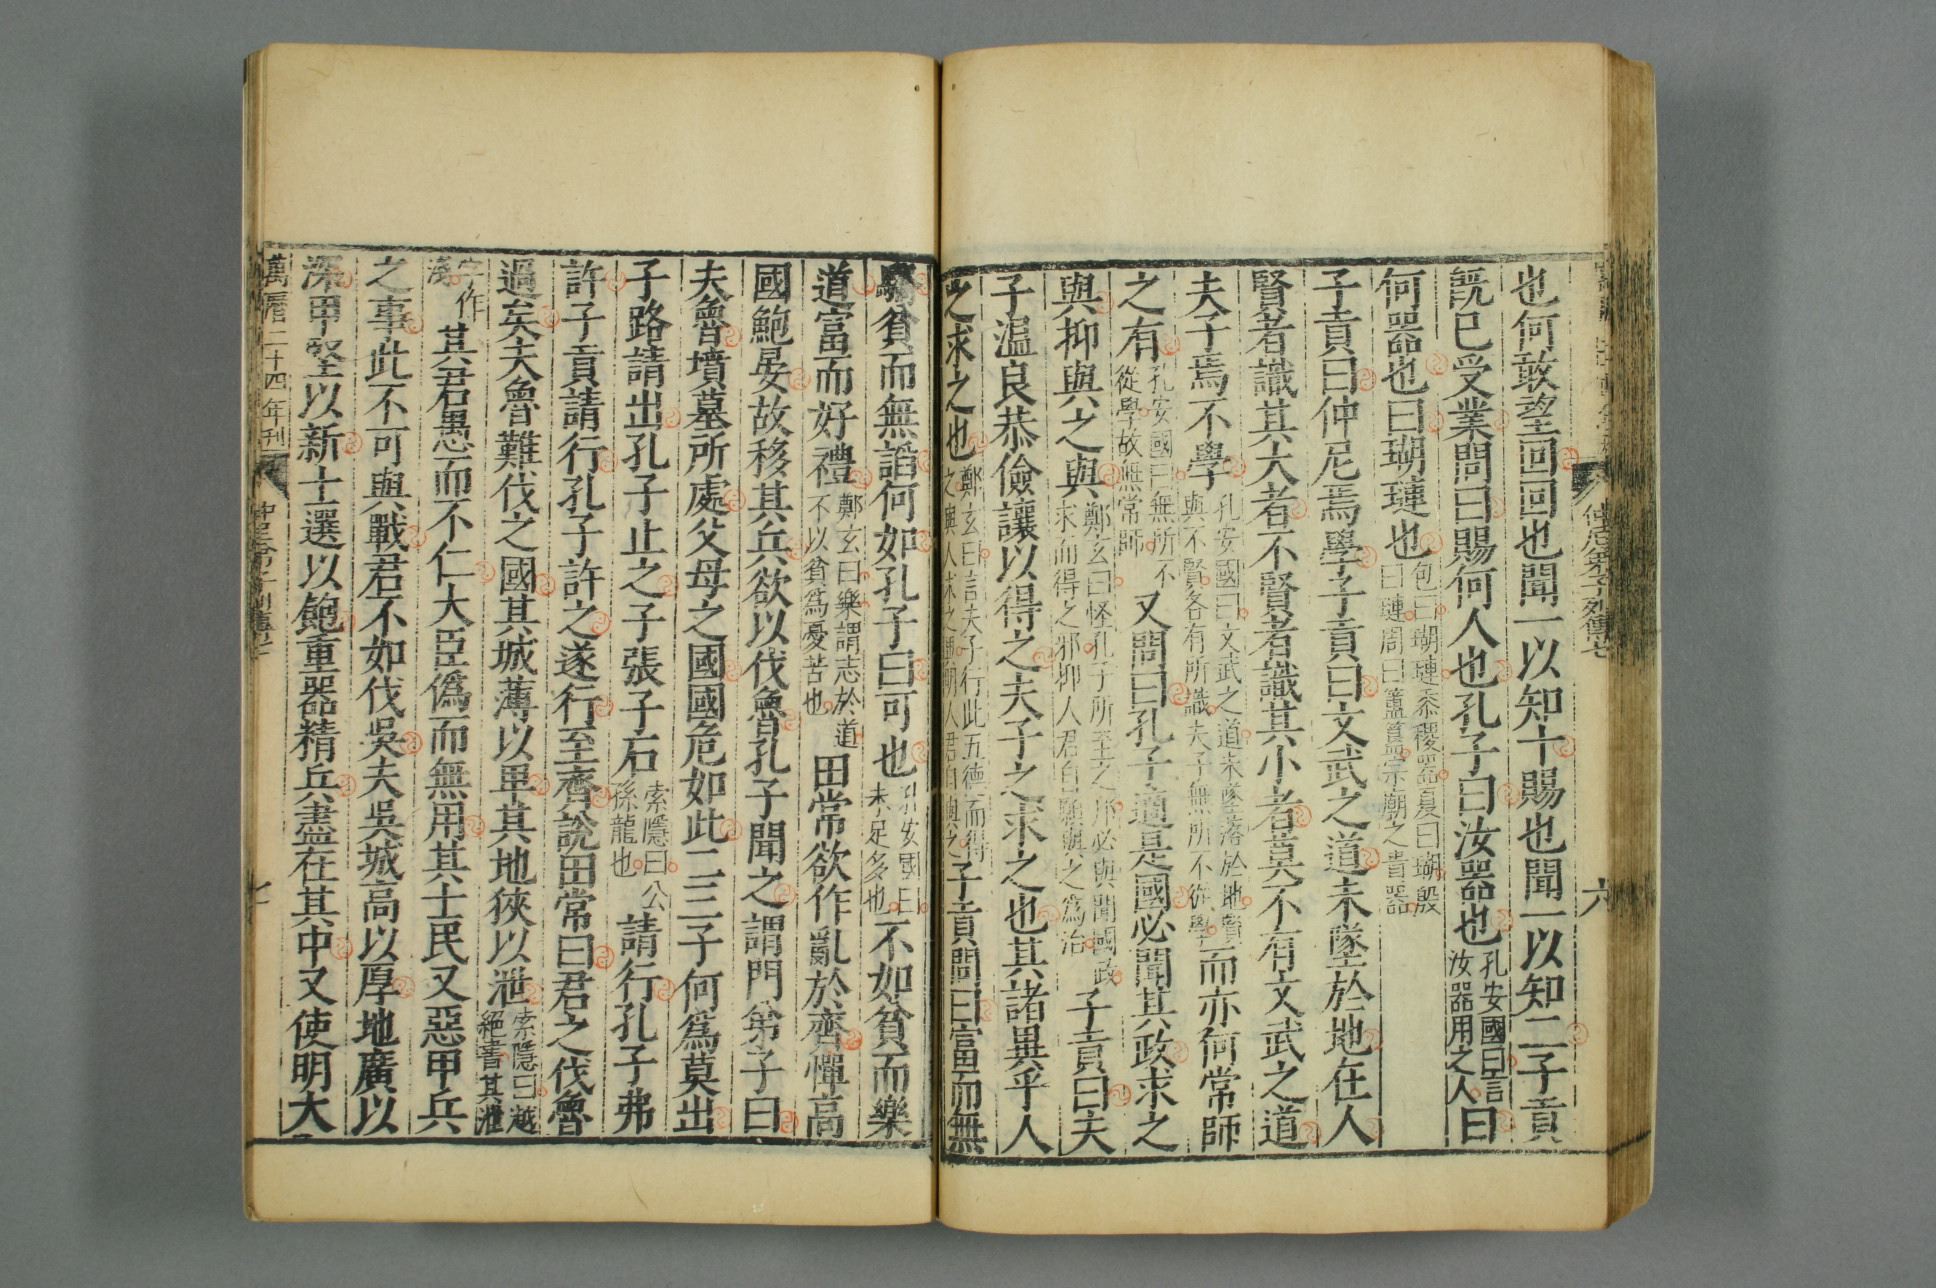 仲尼弟子列傳七
六
也何敢望回回也聞一以知十賜也聞一以知二子貢
既已受業問曰賜何人也孔子曰汝器也孔安國曰言汝器用之人曰
何器也曰瑚璉也包曰瑚璉黍稷器夏曰瑚殷曰璉周曰簠簋宗廟之貴器
子貢曰仲尼焉學子貢曰文武之道未墜於地在人
賢者識其大者不賢者識其小者莫不有文武之道
夫子焉不學孔安國曰文武之道未墜落於地賢與不賢各有所識夫子無所不從學而亦何常師
之有孔安國曰無所不從學故無常師又問曰孔子適是國必聞其政求之
與抑與之與鄭玄曰怪孔子所至之邦必與聞國政求而得之邪抑人君自願與之為治子貢曰夫
子溫良恭儉讓以得之夫子之求之也其諸異乎人
之求之也鄭玄曰言夫子行此五德而得之與人求之異明人君自與之子貢問曰富而無
驕貧而無諂何如孔子曰可也孔安國曰未足多也不如貧而樂
道富而好禮鄭玄曰樂謂志於道不以貧爲憂苦也田常欲作亂於齊憚高
國鮑晏故移其兵欲以伐魯孔子聞之謂門弟子曰
夫魯墳墓所處父母之國國危如此二三子何爲莫出
子路請出孔子止之子張子石索隱曰公孫龍也請行孔子弗
許子貢請行孔子許之遂行至齊說田常曰君之伐魯
過矣夫魯難伐之國其城薄以卑其地狹以泄索隱曰越絕書其泄
字作淺其君愚而不仁大臣僞而無用其士民又惡甲兵
之事此不可與戰君不如伐吳夫吳城高以厚地廣以
深甲堅以新士選以飽重器精兵盡在其中又使明大
萬曆二十四年刊
仲尼弟子列傳七
七